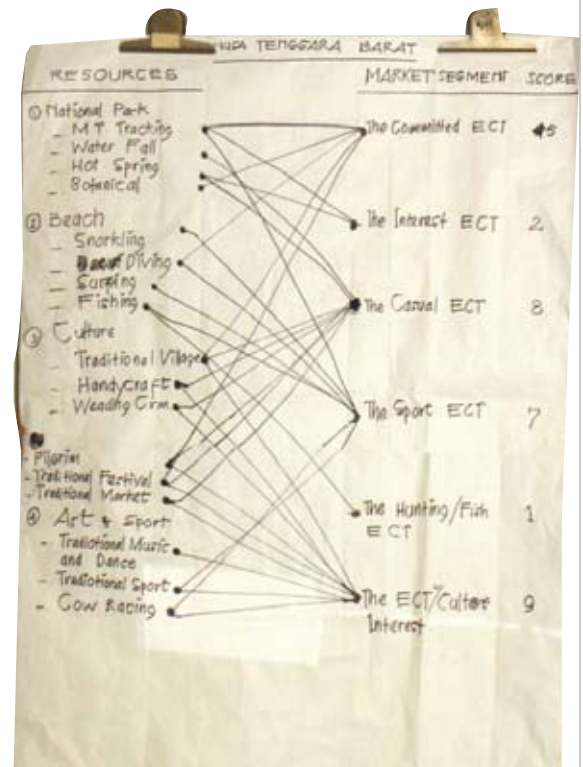 NUSA TENGGARA BARAT
RESOURCES
① National Park
- MT Tracking
- Water Fall
- Hot Spring
- Botanical
② Beach
- Snorkling
- Diving
- Surfing
- Fishing
③ Culture
- Traditional Village
- Handycraft
- Weading Crm
- Pilgrim
- Traditional Festival
- Traditional Market
④ Art & Sport
- Tradiotional Music
and Dance
- Tradiotional Sport
- Cow Racing
MARKET SEGMENT SCORE
The Committed ECT 5
The Interest ECT 2
The Casual ECT 8
The Sport ECT 7
The Hunting/Fish 1
ECT
The ECT/Culture 9
Interest